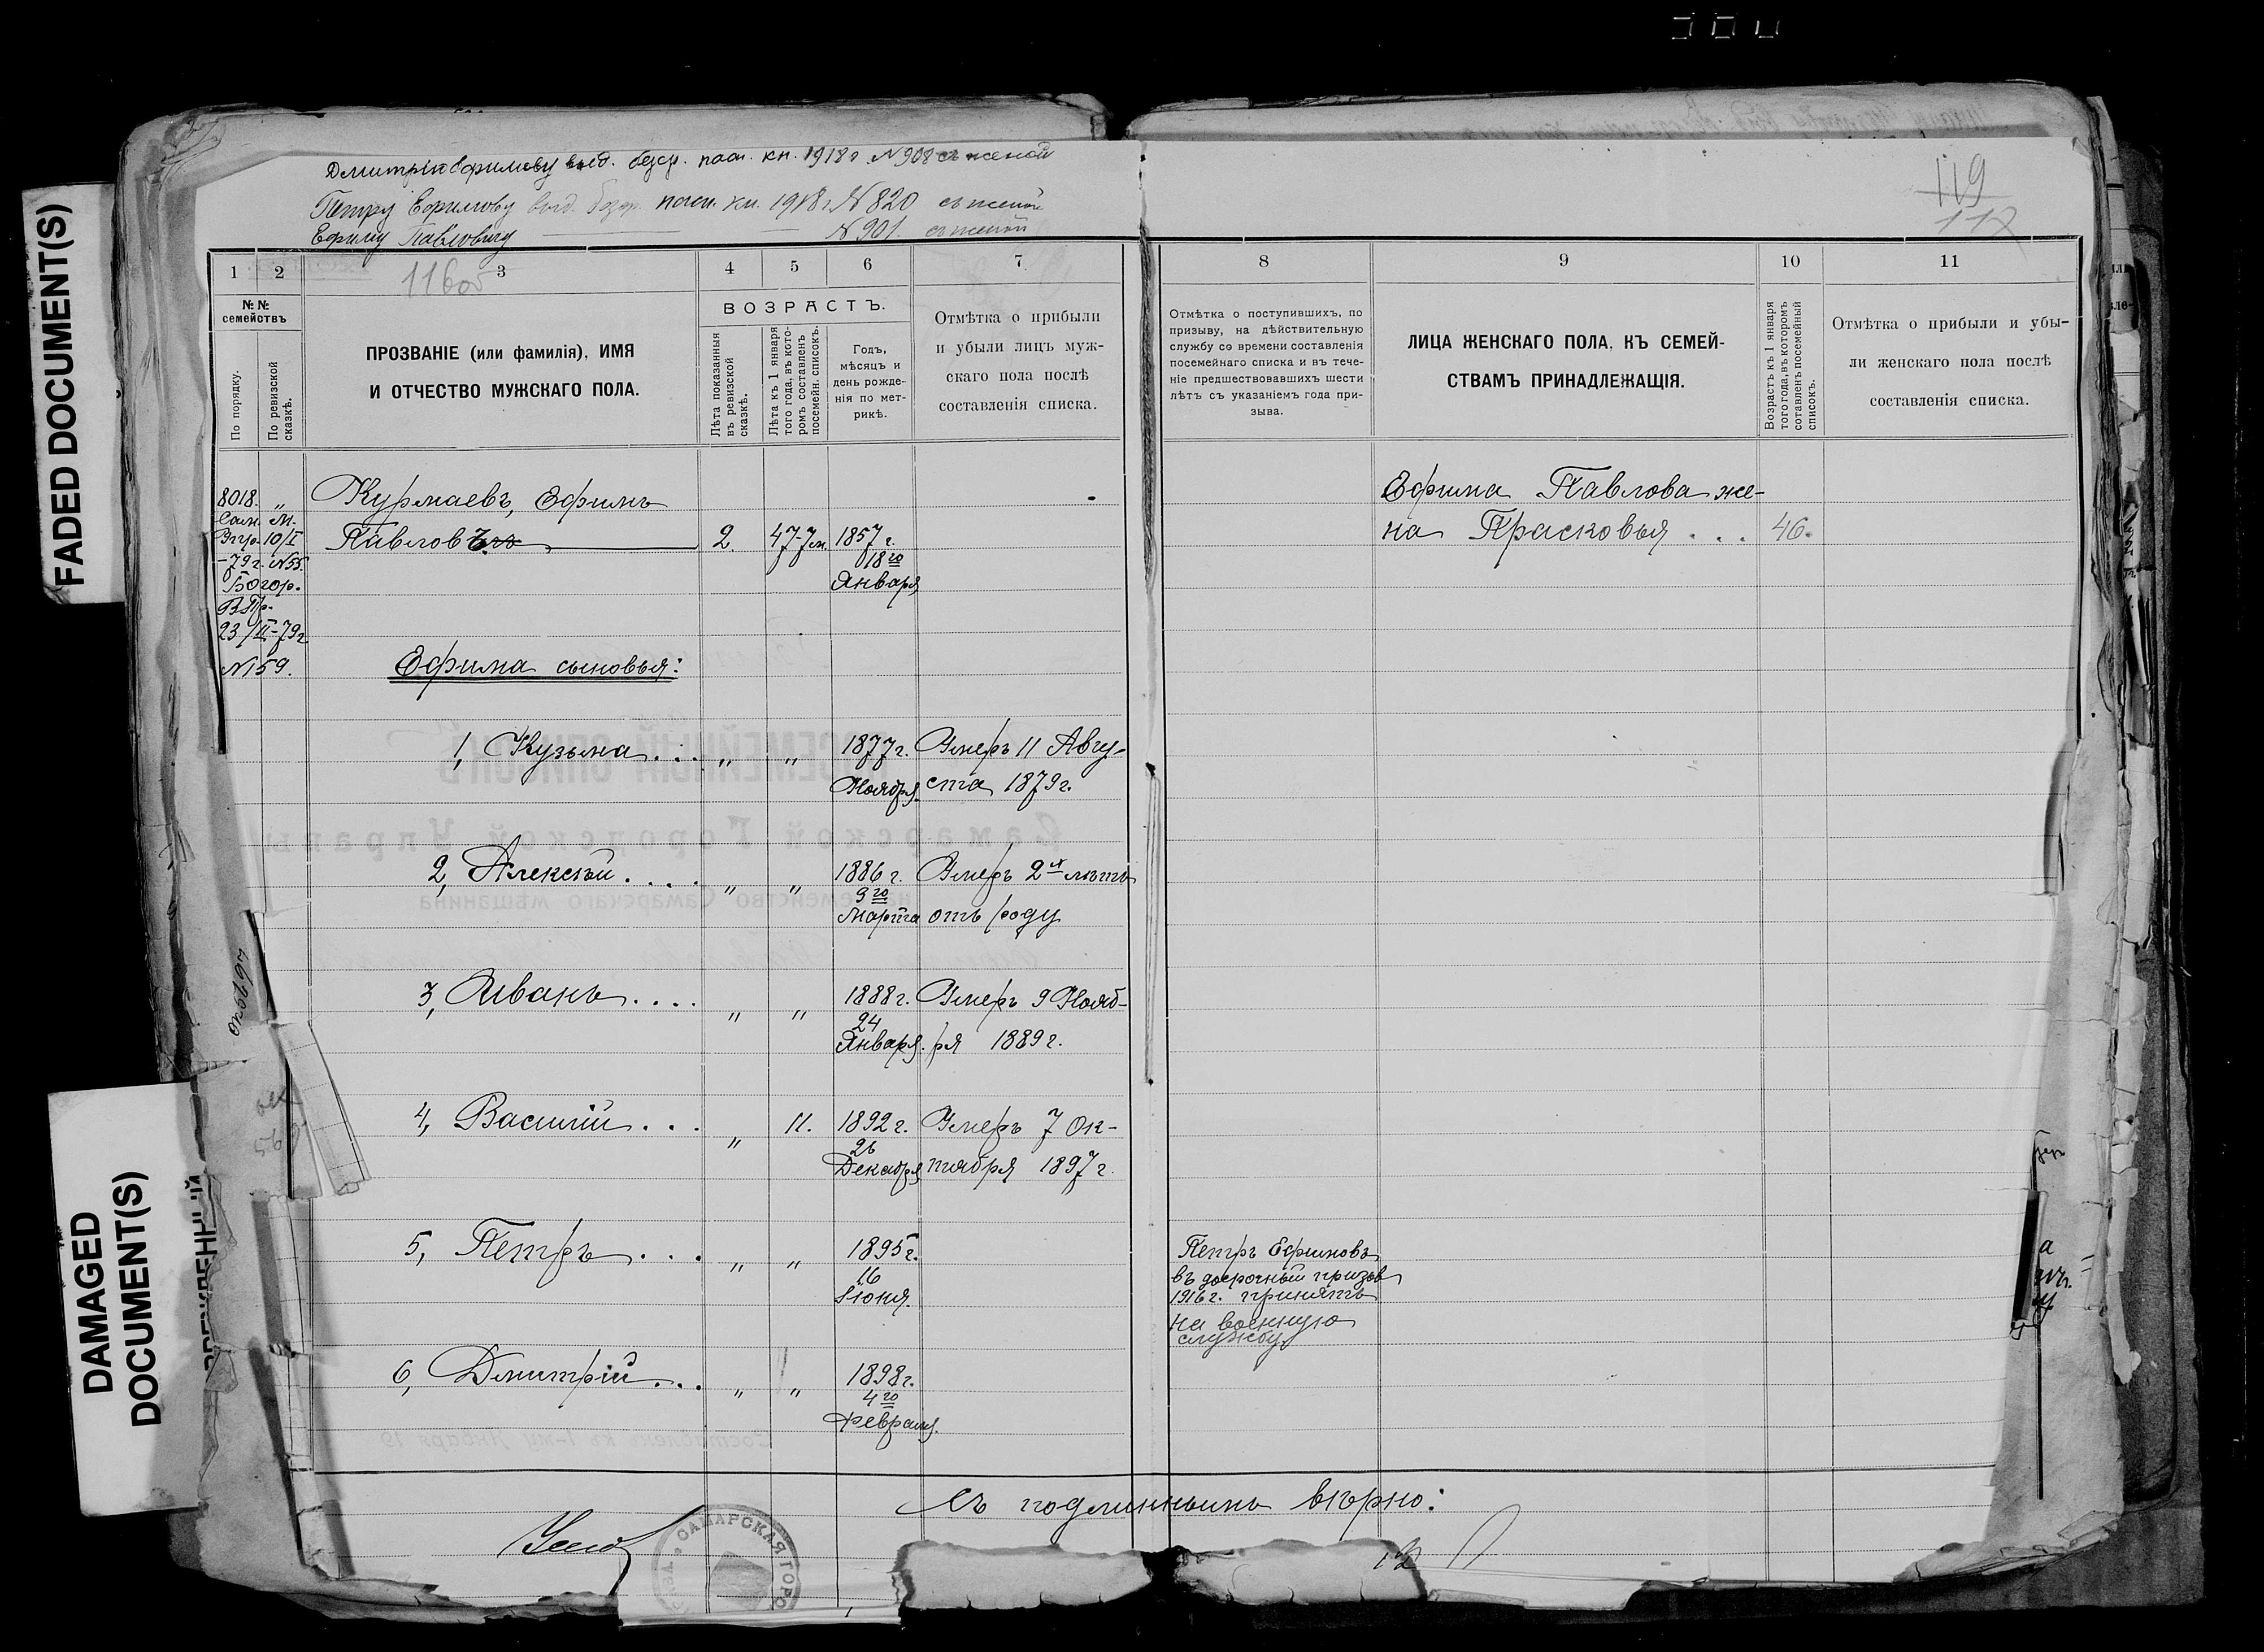 FADED DOCUMENT(S)
DAMAGED
DOCUMENT(S)
Дмитрію Ефимову выд. безср. пасп. кн. 1918 г. № 908 съ женой
Петру Ефимову выд. безср. пасп. кн. 1918 г. № 820 съ женой
Ефиму Павловичу № 901. съ женой
119
117
1
2
3
4
5
6
7
8
9
10
11
№ №
семействъ
По порядку.
По ревизской
сказкѣ.
ПРОЗВАНІЕ (или фамилія), ИМЯ
И ОТЧЕСТВО МУЖСКАГО ПОЛА.
ВОЗРАСТЪ.
Лѣта показанныя
въ ревизской
сказкѣ.
Лѣта къ 1 января
того года, въ кото-
ромъ составленъ
посемейн. списокъ.
Годъ,
мѣсяцъ и
день рожде-
нія по мет-
рикѣ.
Отмѣтка о прибыли
и убыли лицъ муж-
скаго пола послѣ
составленія списка.
Отмѣтка о поступившихъ, по
призыву, на дѣйствительную
службу со времени составленія
посемейнаго списка и въ тече-
ніе предшествовавшихъ шести
лѣтъ съ указаніемъ года при-
зыва.
ЛИЦА ЖЕНСКАГО ПОЛА, КЪ СЕМЕЙ-
СТВАМЪ ПРИНАДЛЕЖАЩІЯ.
Возрастъ къ 1 января
того года, въ которомъ
составленъ посемейный
списокъ.
Отмѣтка о прибыли и убы-
ли женскаго пола послѣ
составленія списка.
8018. „ Курмаевъ, Ефимъ
Павловъ 2. 47-7м. 1857 г.
18го
Января
10/I
-79 г. №55.
Богор.
23/II-79 г
№159.
Ефима Павлова же-
на Прасковья . . . 46.
Ефима сыновья:
1, Кузьма . . . „ „ 1877 г. Умеръ 11 Авгу-
Ноября. ста 1879 г.
2, Алексѣй . . . . „ „ 1886 г. Умеръ 2х лѣтъ
9го
Марта отъ роду
3, Иванъ . . . . „ „ 1888 г. Умеръ 9 Нояб-
24
Января. ря 1889 г.
4, Василій . . . „ 11. 1892 г. Умеръ 7 Ок-
26
Декабря тября 1897 г.
5, Петръ . . . „ „ 1895 г.
16
Іюня.
Петръ Ефимовъ
въ досрочный призывъ
1916 г. принятъ
на военную
службу
6, Дмитрій . . . „ „ 1898 г.
4го
Февраля.
Съ подлиннымъ вѣрно:
САМАРСКАЯ ГОРО